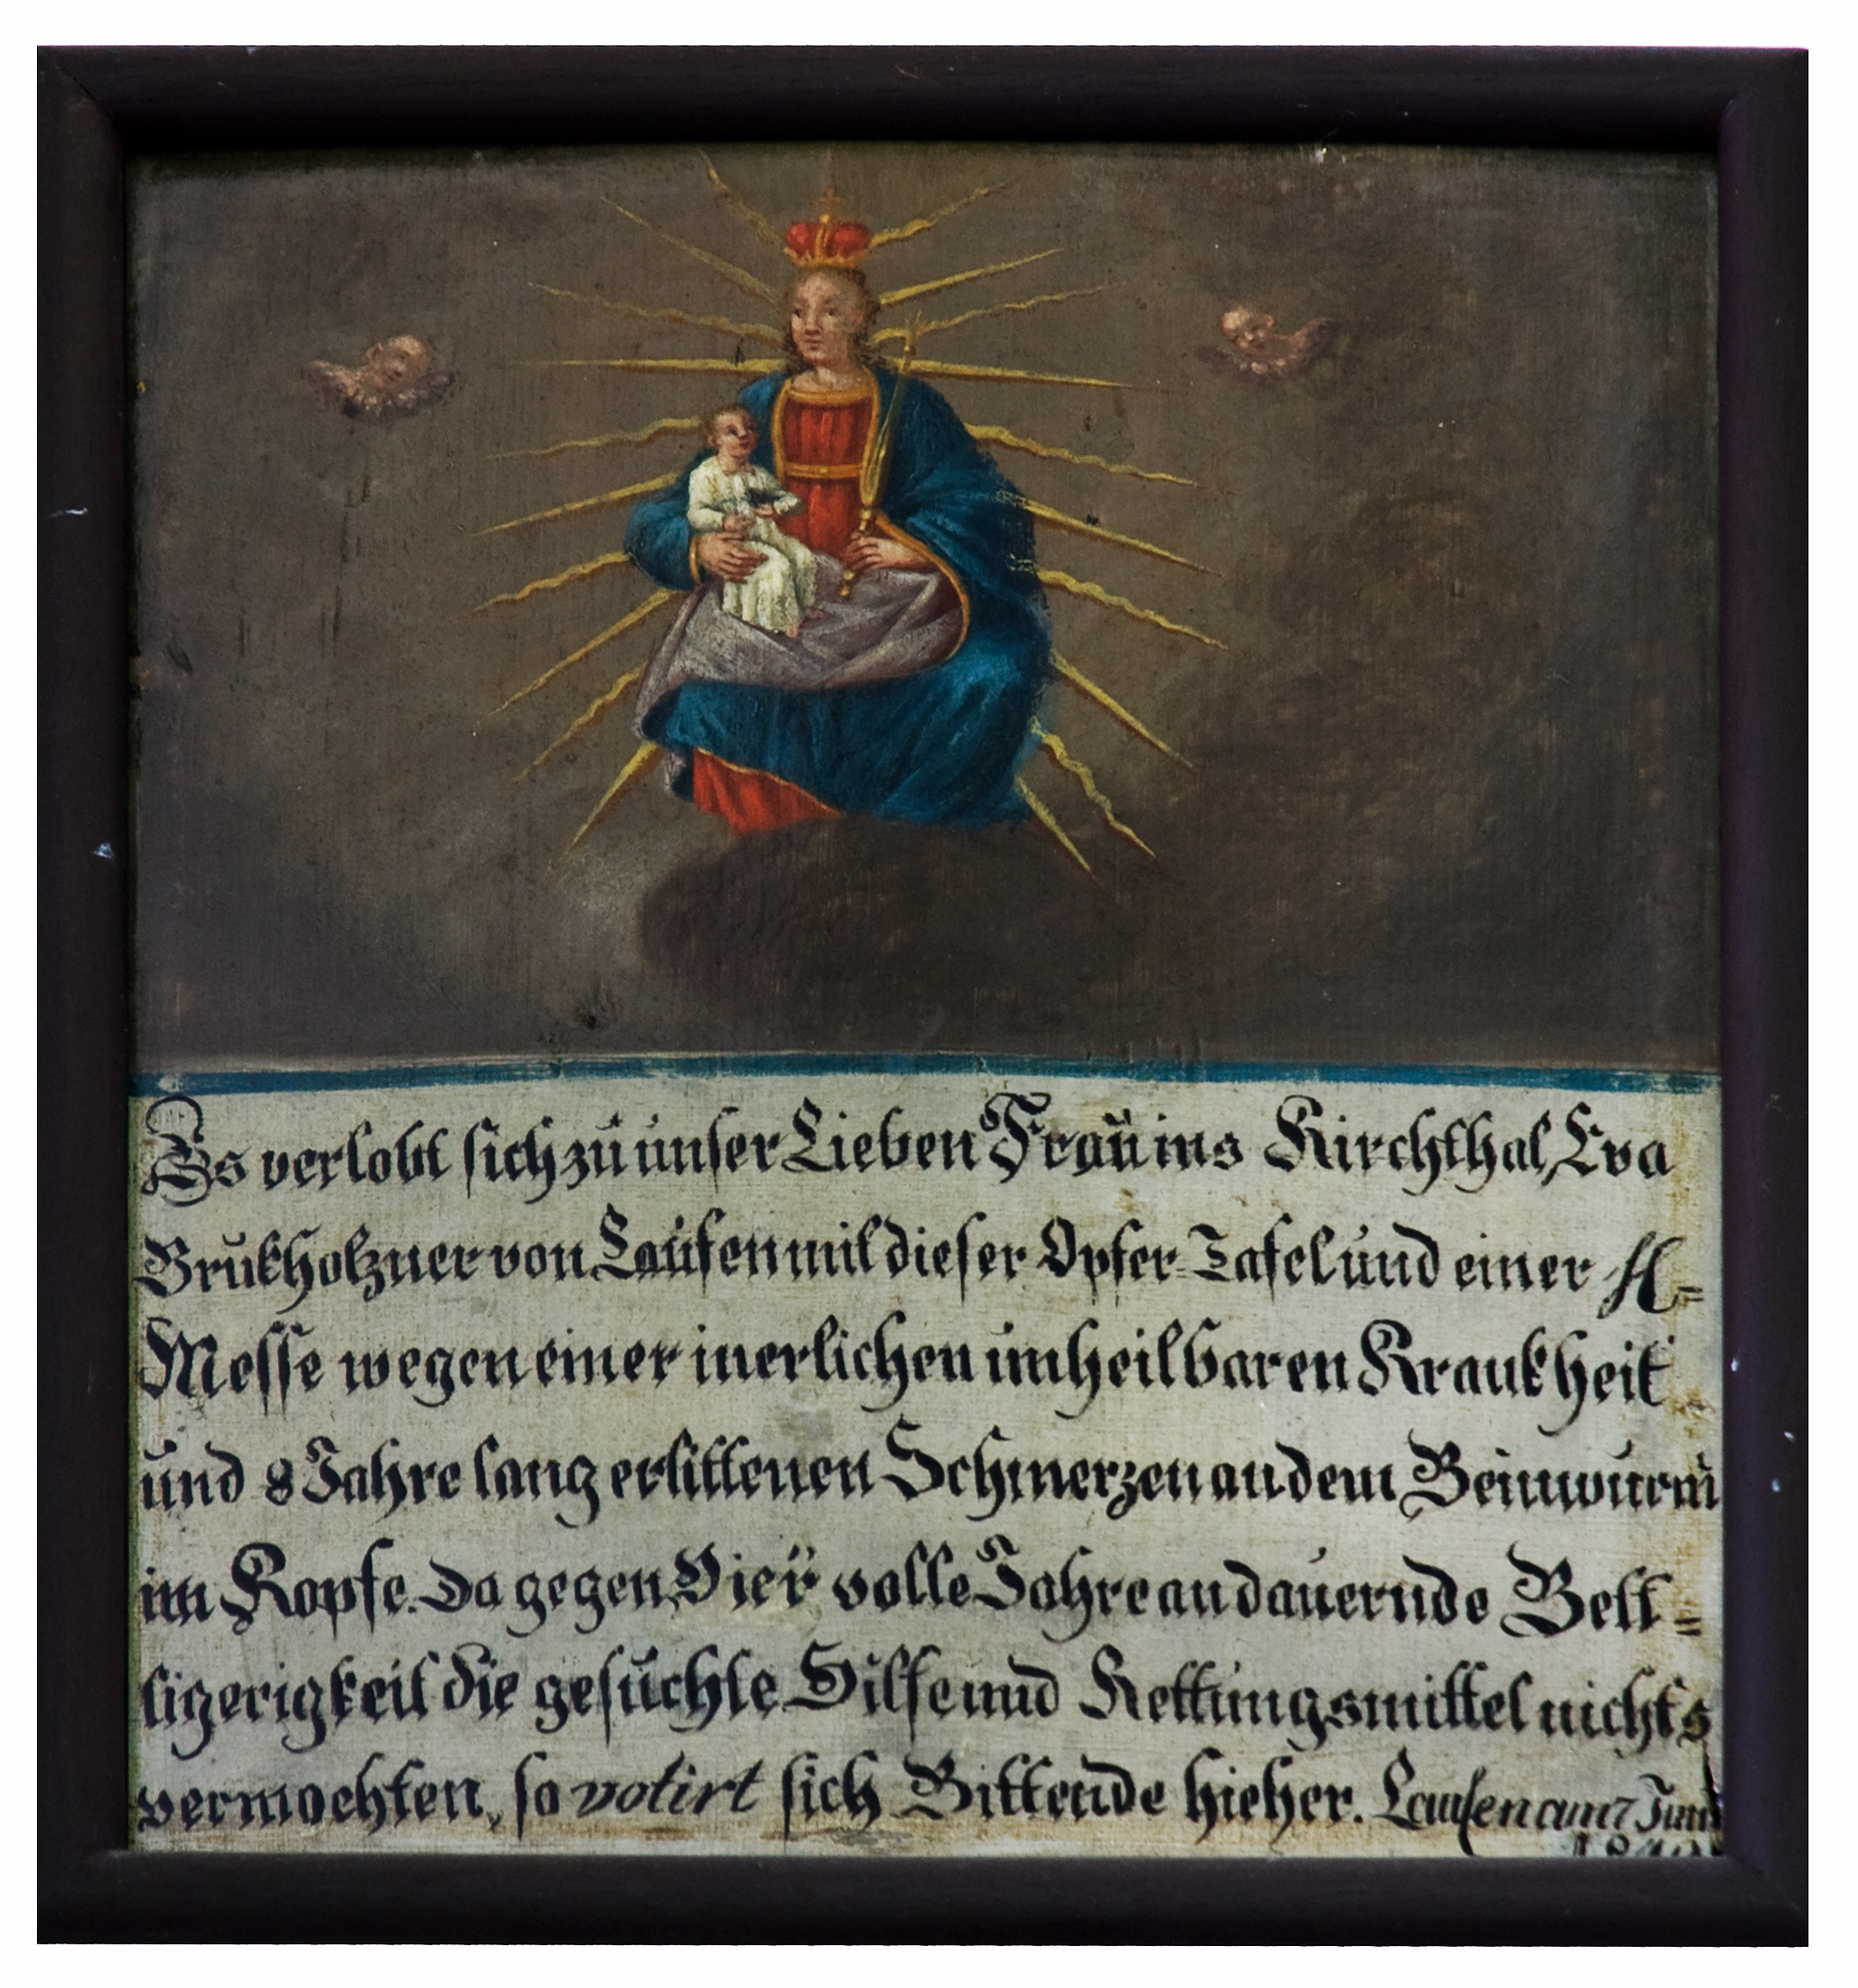 Es verlobt sich zu unser Lieben Frau ins Kirchthal, Eva
Brukholzner von Laufen mit dieser Opfer-Tafel und einer H=
Messe wegen einer inerlichen unheilbaren Krankheit
und 8 Jahre lang erlittenen Schmerzen an dem Beinwurm
im Kopfe. Da gegen Vier volle Jahre andauernde Bett=
ligerigkeit die gesuchte Hilfe und Rettungsmittel nichts
vermochten, so votirt sich Bittende hieher. Laufen am 7 Juni